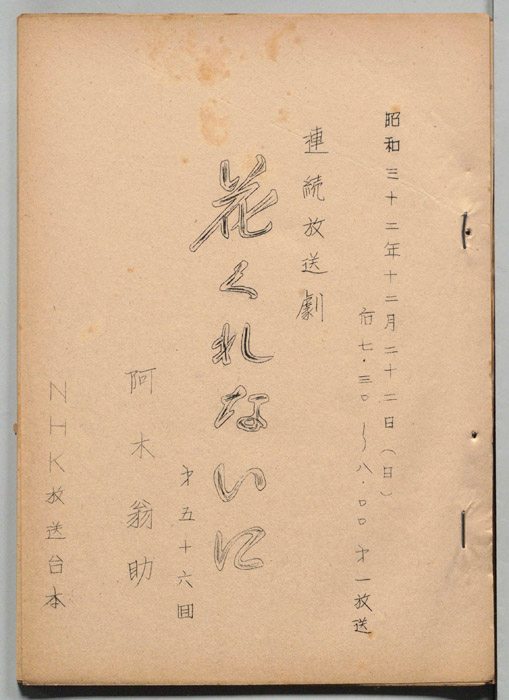 昭和三十二年十二月二十二日(日)
后七・三〇〜八・〇〇 才一放送
連続放送劇
花くれないに
才五十六回
阿木翁助
NHK放送台本